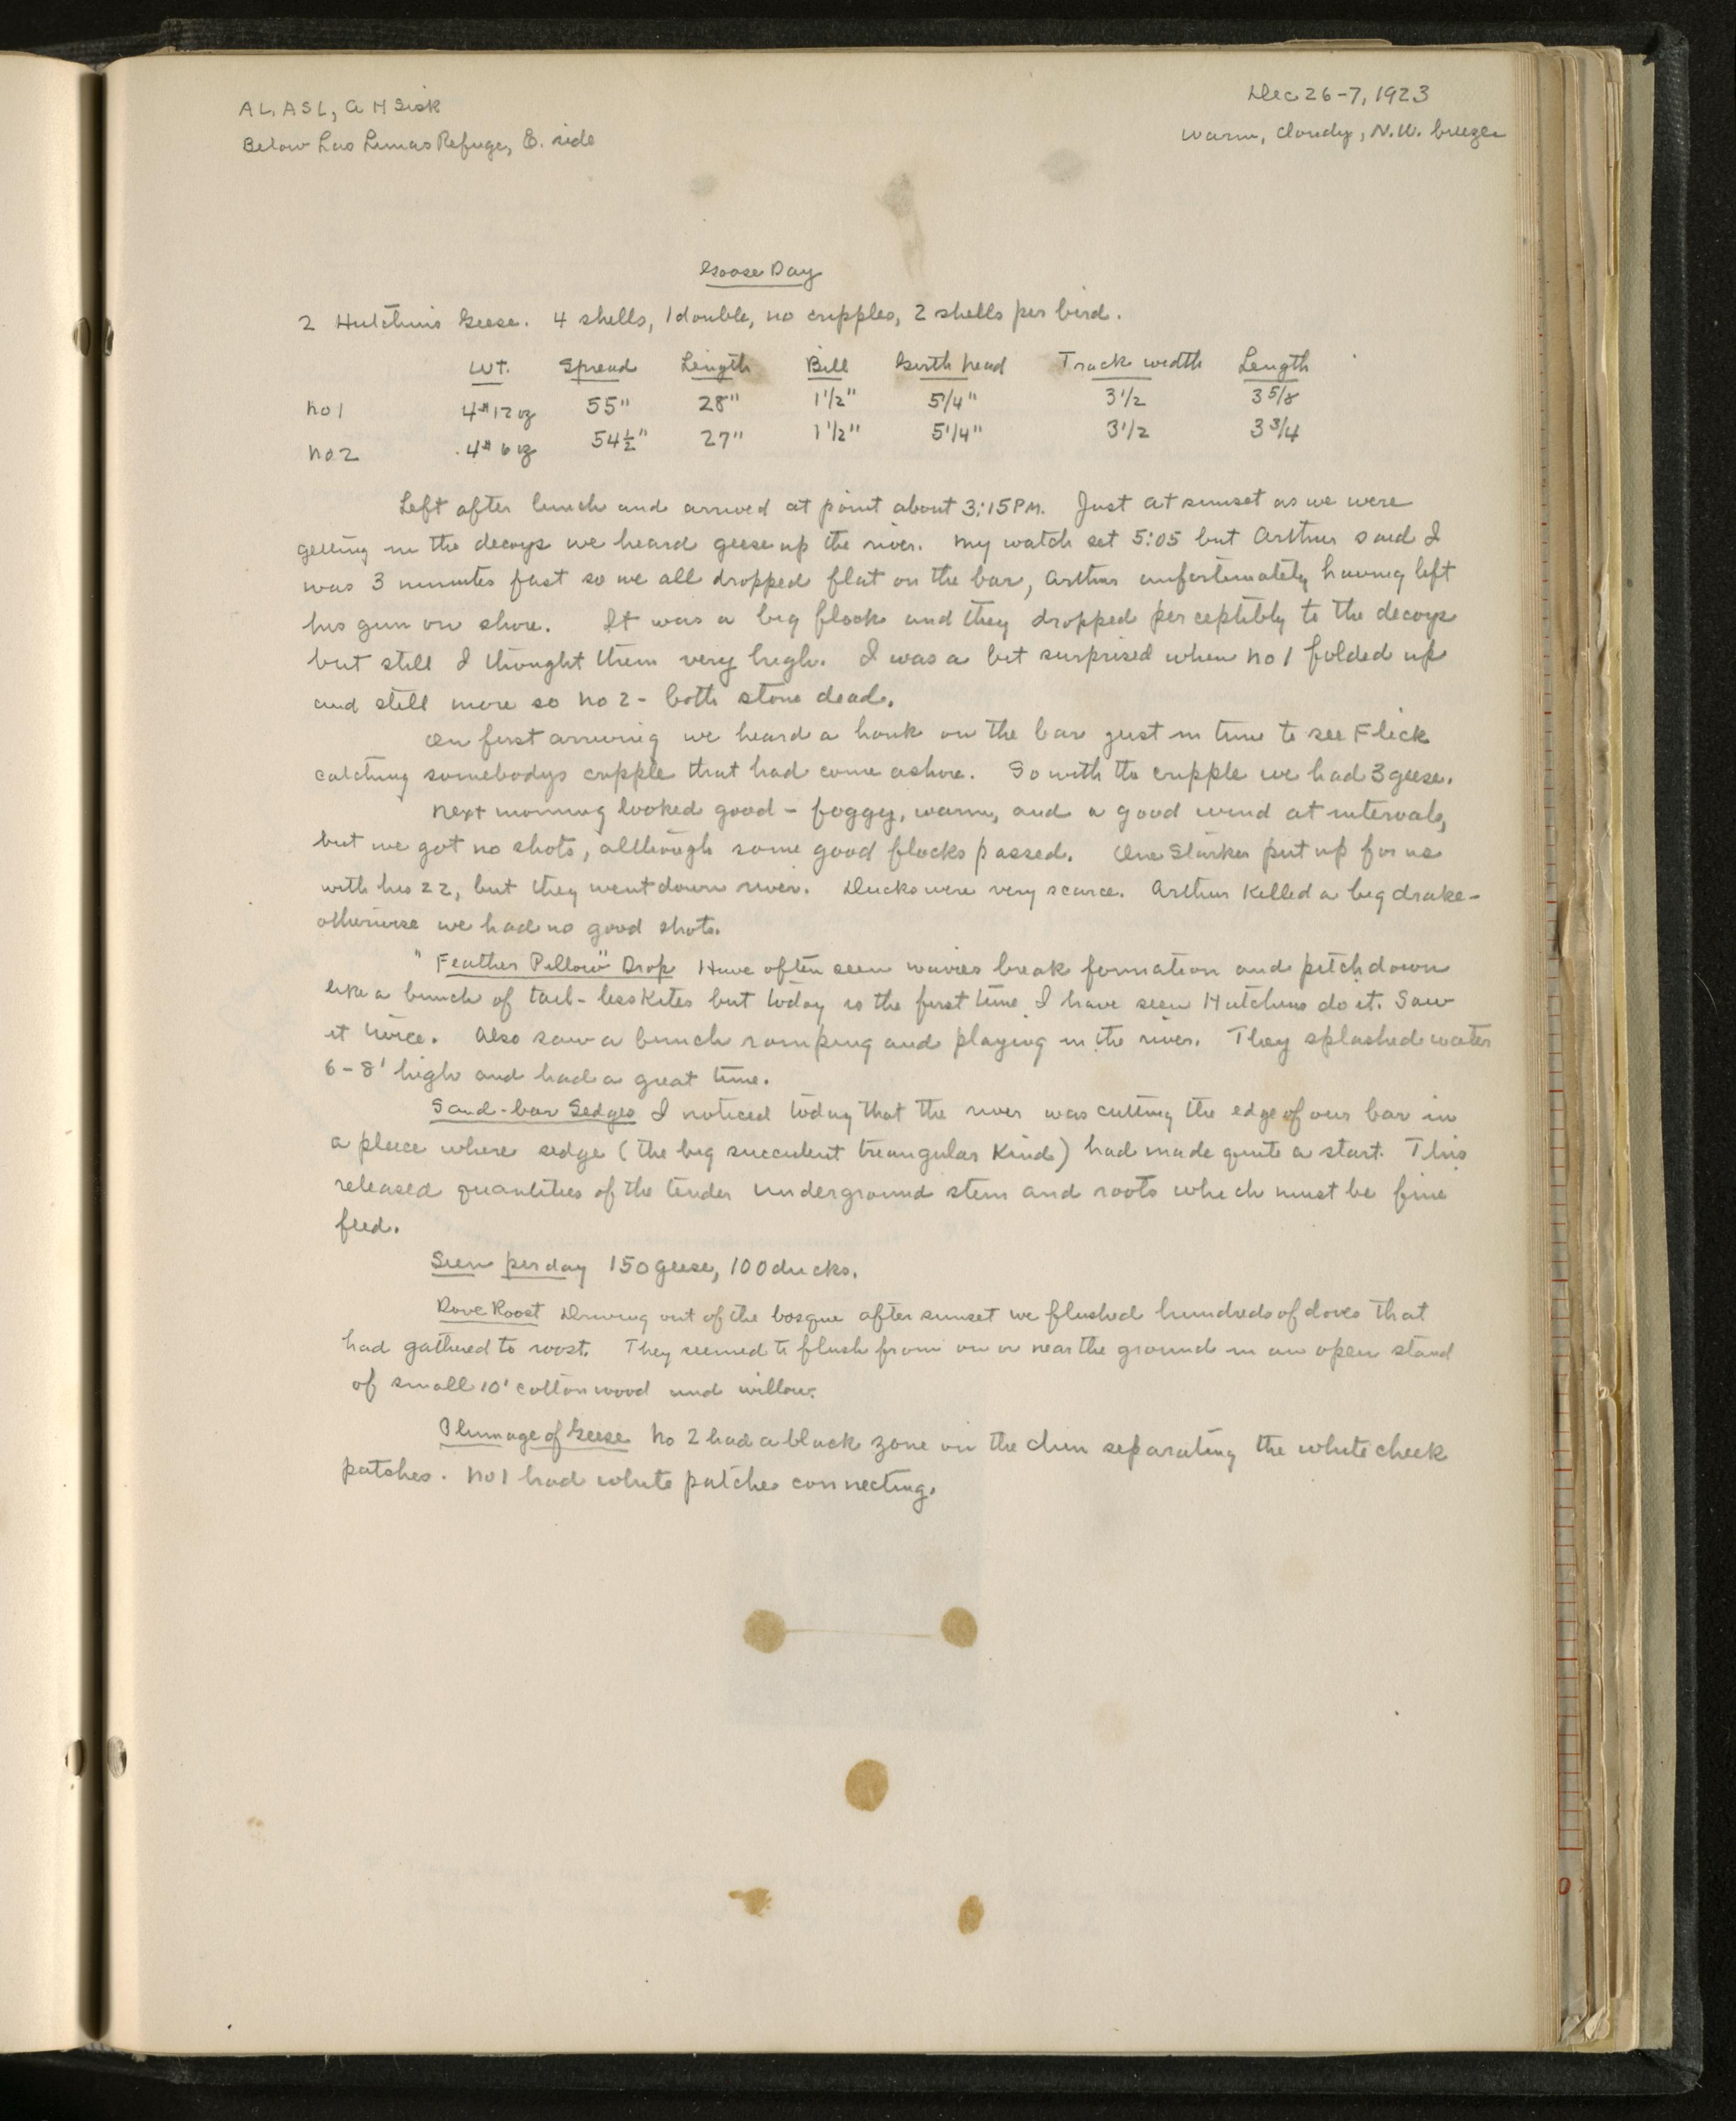 AL, ASL, A H Sisk
Dec 26-7, 1923
Below Los Lunas Refuge, E. side
Warm, Cloudy, N.W. breeze
Goose Day
2 Hutchins Geese. 4 shells, 1 double, no cripples, 2 shells per bird.
Wt. Spread Length Bill Girth head Track width Length
No 1 4# 12 oz 55" 28" 1 1/2" 5 1/4" 3 1/2 3 5/8
No 2 4# 6 oz 54 1/2" 27" 1 1/2" 5 1/4" 3 1/2 3 3/4
Left after lunch and arrived at point about 3:15 PM. Just at sunset as we were
getting in the decoys we heard geese up the river. My watch set 5:05 but Arthur said I
was 3 minutes fast so we all dropped flat on the bar, Arthur unfortunately having left
his gun on shore. It was a big flock and they dropped perceptibly to the decoys
but still I thought them very high. I was a bit surprised when No 1 folded up
and still more so No 2 - both stone dead.
On first arriving we heard a honk on the bar just in time to see Flick
catching somebodys cripple that had come ashore. So with the cripple we had 3 geese.
Next morning looked good - foggy, warm, and a good wind at intervals,
but we got no shots, although some good flocks passed. One Starker put up for us
with his 22, but they went down river. Ducks were very scarce. Arthur killed a big drake -
otherwise we had no good shots.
"Feather Pillow" Drop Have often seen wavies break formation and pitch down
like a bunch of tail-less kites but today is the first time I have seen Hutchins do it. Saw
it twice. Also saw a bunch romping and playing in the river. They splashed water
6-8' high and had a great time.
Sand-bar Sedges I noticed today that the river was cutting the edge of our bar in
a place where sedge (the big succulent triangular kind) had made quite a start. This
released quantities of the tender underground stem and roots which must be fine
feed.
Seen per day 150 geese, 100 ducks.
Dove Roost Driving out of the bosque after sunset we flushed hundreds of doves that
had gathered to roost. They seemed to flush from on or near the ground in an open stand
of small 10' cottonwood and willow.
Plumage of Geese No 2 had a black zone on the chin separating the white cheek
patches. No 1 had white patches connecting.